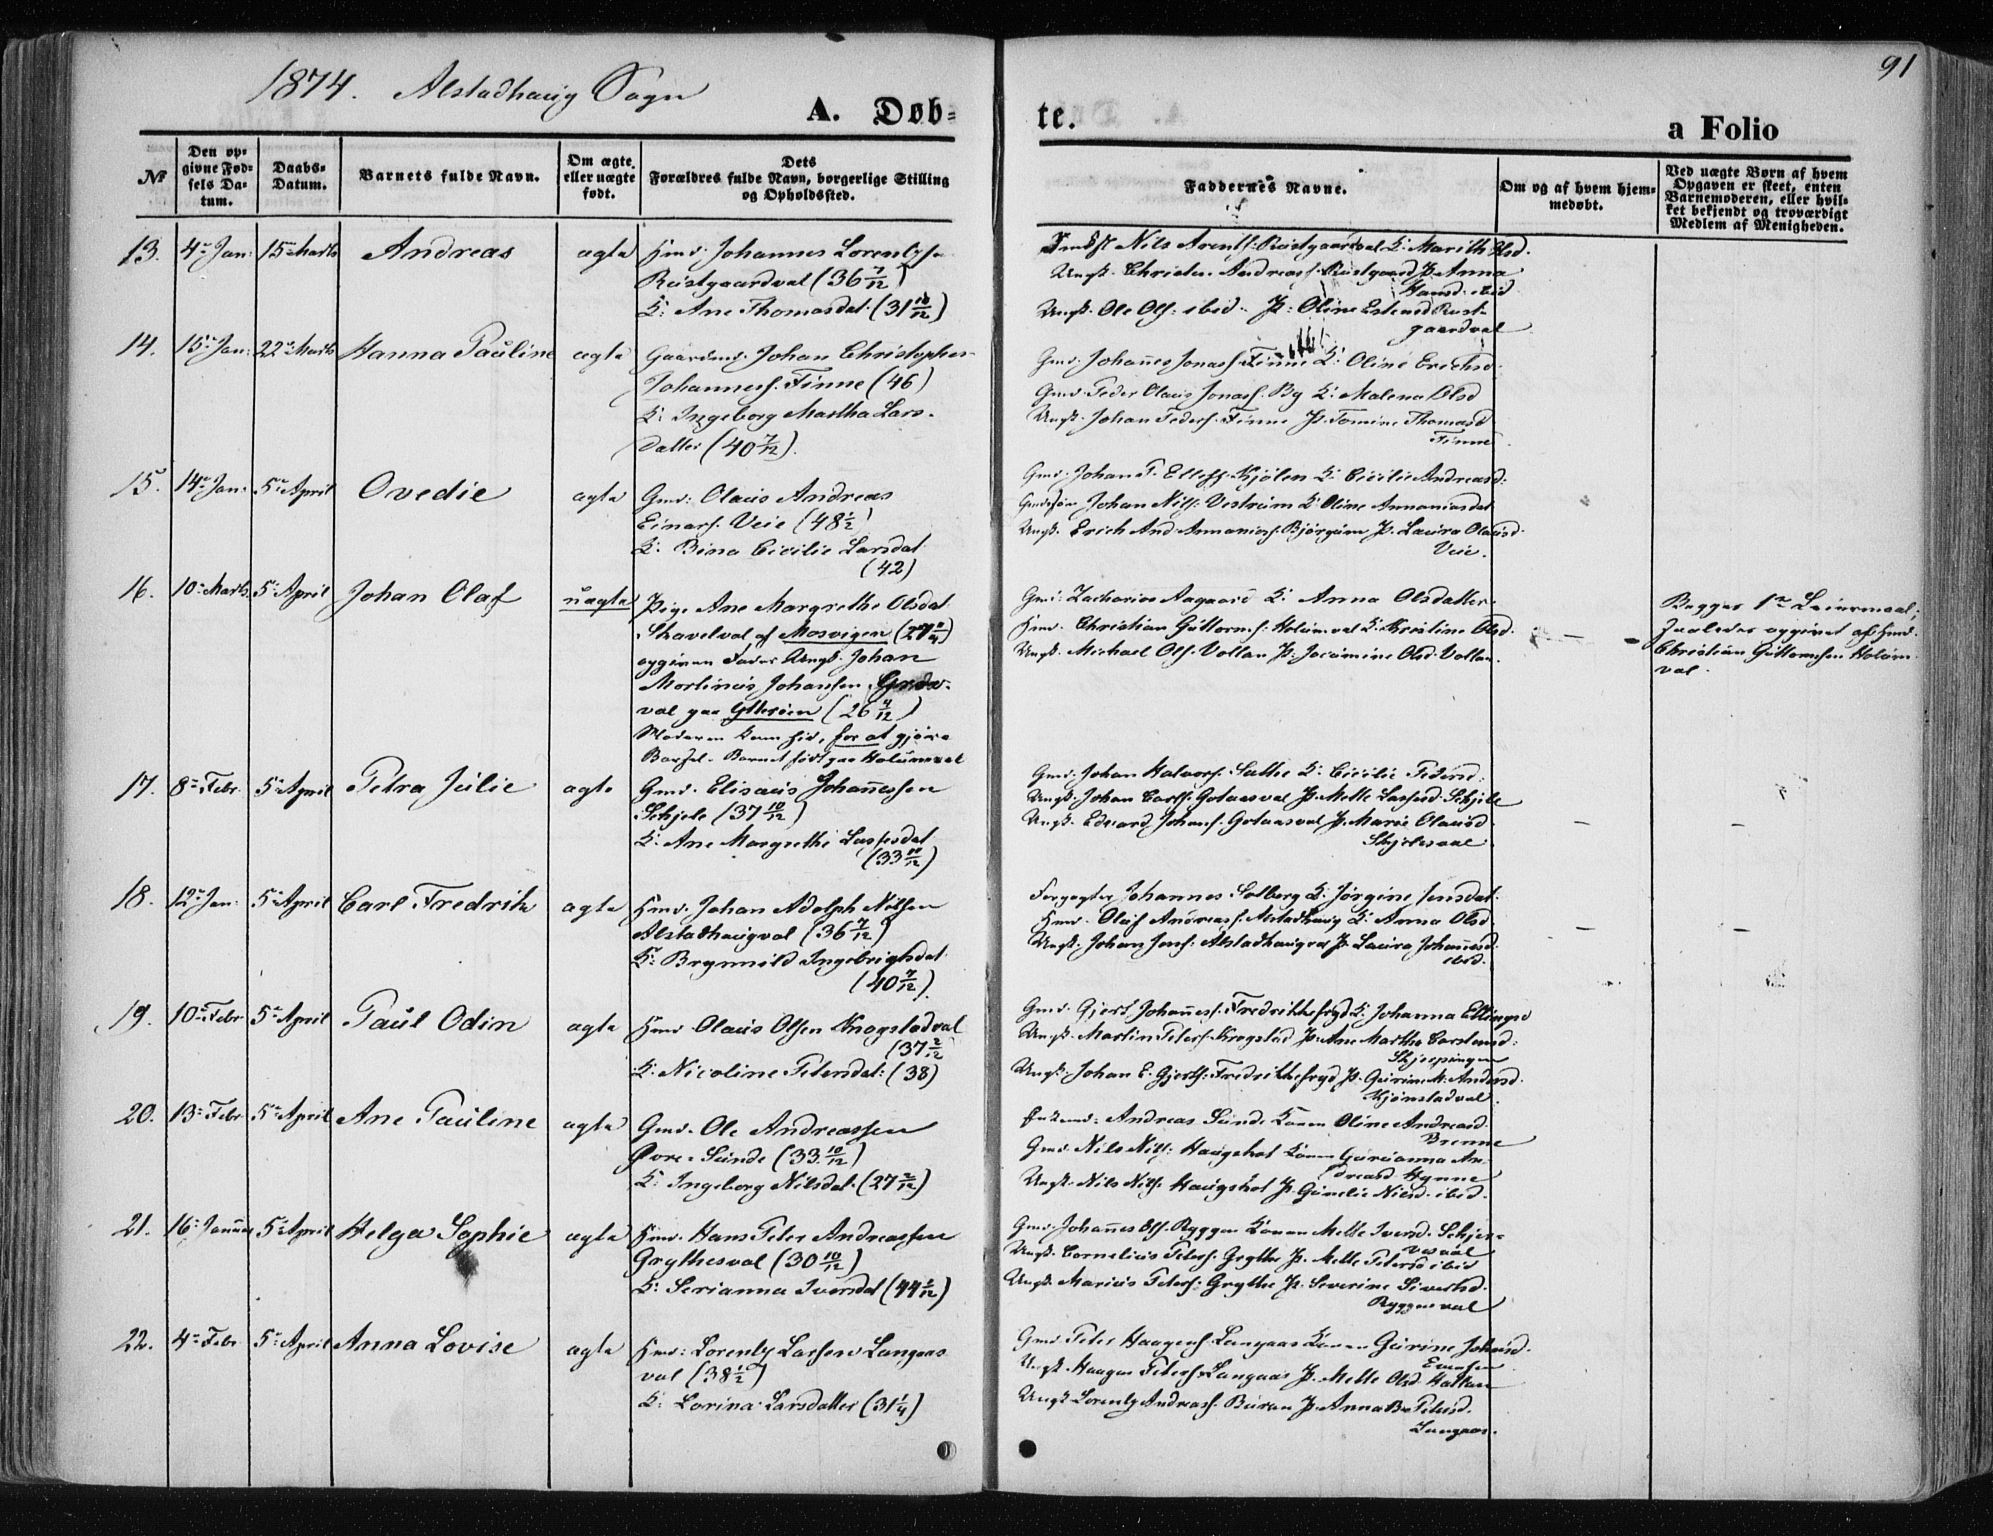 1874. Alstadhaug Sogn
A. Døb=
te.
a Folio
91
№
Den op=
givne Fød=
sels Da=
tum.
Daabs=
Datum.
Barnets fulde Navn.
Om ægte
eller uægte
født.
Dets
Forældres fulde Navn, borgerlige Stilling
og Opholdssted.
Faddernes Navne.
Om og af hvem hjem=
medøbt.
Ved uægte Børn af hvem
Opgaven er skeet, enten
Barnemoderen, eller hvil=
ket bekjendt og troværdigt
Medlem af Menigheden.
13. 4de Jan: 15de Marts Andreas ægte
Hmd. Johannes Lorentzsen
Røstgaardval (36 7/12)
K: Ane Thomasdat: (31 10/12)
Nils Arents: Røstgaardval K: Marith Olsd.
Ungk. Christen Andreass. Røstgaard P. Anna
Hansd. ibid
Ungk. Ole Ols: ibid. P: Oline Estensd Røst-
gaardval
14. 15de Jan: 22de Marts Hanna Pauline ægte
Gaardmd. Johan Christopher
Johanness. Finne (46)
K: Ingeborg Martha Lars-
datter (40 7/12).
Gmd. Johannes Jonass. Finne K: Oline Erichsd.
Gmd. Peder Olaus Jonass. By K: Malena Olsd
Ungk. Johan Peders. Finne P. Tomine Thomasd
Finne
15. 14de Jan: 5te April Ovedie ægte
Gmd: Olaus Andreas
Einars. Veie (48 1/2)
K: Bina Cicilie Larsdat.
(42)
Gmd. Johan P. Ellefs. Kjølen K: Cicilie Andreasd.
Johan Nils. Vestrum K. Oline Annaniasdat
Ungk. Erich And. Annanias. Bjørgum P. Laura Olausd.
Veie.
16. 10de Marts. 5te April Johan Olaf uægte
Pige Ane Margrethe Olsdat.
af Mosvigen
opgiven Fader Ungk. Johan
Martinus Johansen
val paa Ytterøen (26 4/12)
Moderen kom hid, for at gjøre
Barsel. Barnet født paa Holumval
Gmd. Zacharias Aagaard K: Anna Olsdatter.
Hmd. Christian Guttorms. Holumval K. Kristine Olsd.
Ungk. Michael Ols. Vollan P. Jacomine Olsd Vollan.
Begges 1ste Leiermaal;
opgivet af Hmd.
Christian Guttormsen Holum-
val.
17. 8de Febr. 5te April Petra Julie ægte
Gmd. Elisæus Johannessen
Schjele (37 10/12)
K. Ane Margrethe Lassesdat
(33 10/12)
Gmd. Johan Halvors. K. Cicilie Pedersd.
Ungk. Johan Carls. Gotaasval P. Mette Lassesd. Schjele
Ungk. Edvard Johans. Gotaasval P. Marie Olausd.
Skjelesval
18. 12te Jan. 5te April Carl Fredrik ægte
Hmd. Johan Adolph Nilsen
Alstadhaugval (36 7/12)
K: Brynnild Ingebrigtsdat.
(40 7/12).
Johannes Solberg K. Jørgine Jensdat.
Hmd. Oluf Andreass. Alstadhaug K: Anna Olsd.
Ungk. Johan Jens. Alstadhaugval P. Laura Johannesd.
ibid.
19. 10de Febr 5te April Paul Odin ægte
Hmd Olaus Olsen Krogstadval
(37 2/12)
K: Nicoline Petersdat: (38)
Gmd. Gjert Johanness. Fredrikkefryd K. Johanna Ellingsd
Ungk. Martin Peters. Krogstad P. Ane Martha Carstensd.
Ungk. Johan E. Gjerts: Fredrikkefryd P. Gurine M. Andersd.
Kjønstadval.
20. 13de Febr 5te April Ane Pauline ægte
Gmd. Ole Andreassen
Øvre-Sunde (33 10/12)
K: Ingeborg Nilsdat. (27 2/12)
Andreas Sunde Konen Oline Andreasd.
Brenne
Gmd. Nils Nils: Haugshot Konen Gurianna An-
dreasd Hynne
Ungk. Nils Nils. Haugshot P. Gunelie Nilsd. ibid.
21. 16de Januar 5te April Helga Sophie ægte
Hmd. Hans Peter Andreassen
Grythesval (30 10/12)
K: Serianna Iversdat
Gmd. Johannes Ols. Ryggen Konen Mette Iversd.
Ungk. Cornelius Peters. Grythe P. Mette Petersd ibid
Ungk. Marius Peters. Grythe P. Severine Sivertsd.
Ryggenval
22. 4de Febr 5te April Anna Lovise ægte
Hmd: Lorentz Larsen Langaas-
val (38 1/2)
K: Lorina Larsdatter (31 1/4)
Gmd. Peter Haagens. Langaas Konen Gurine Johansd.
Ungk. Haagen Peters. Langaas P. Mette Olsd
Ungk. Lorentz Andreass. Buran P. Anna B. Petersd.
Langaas.